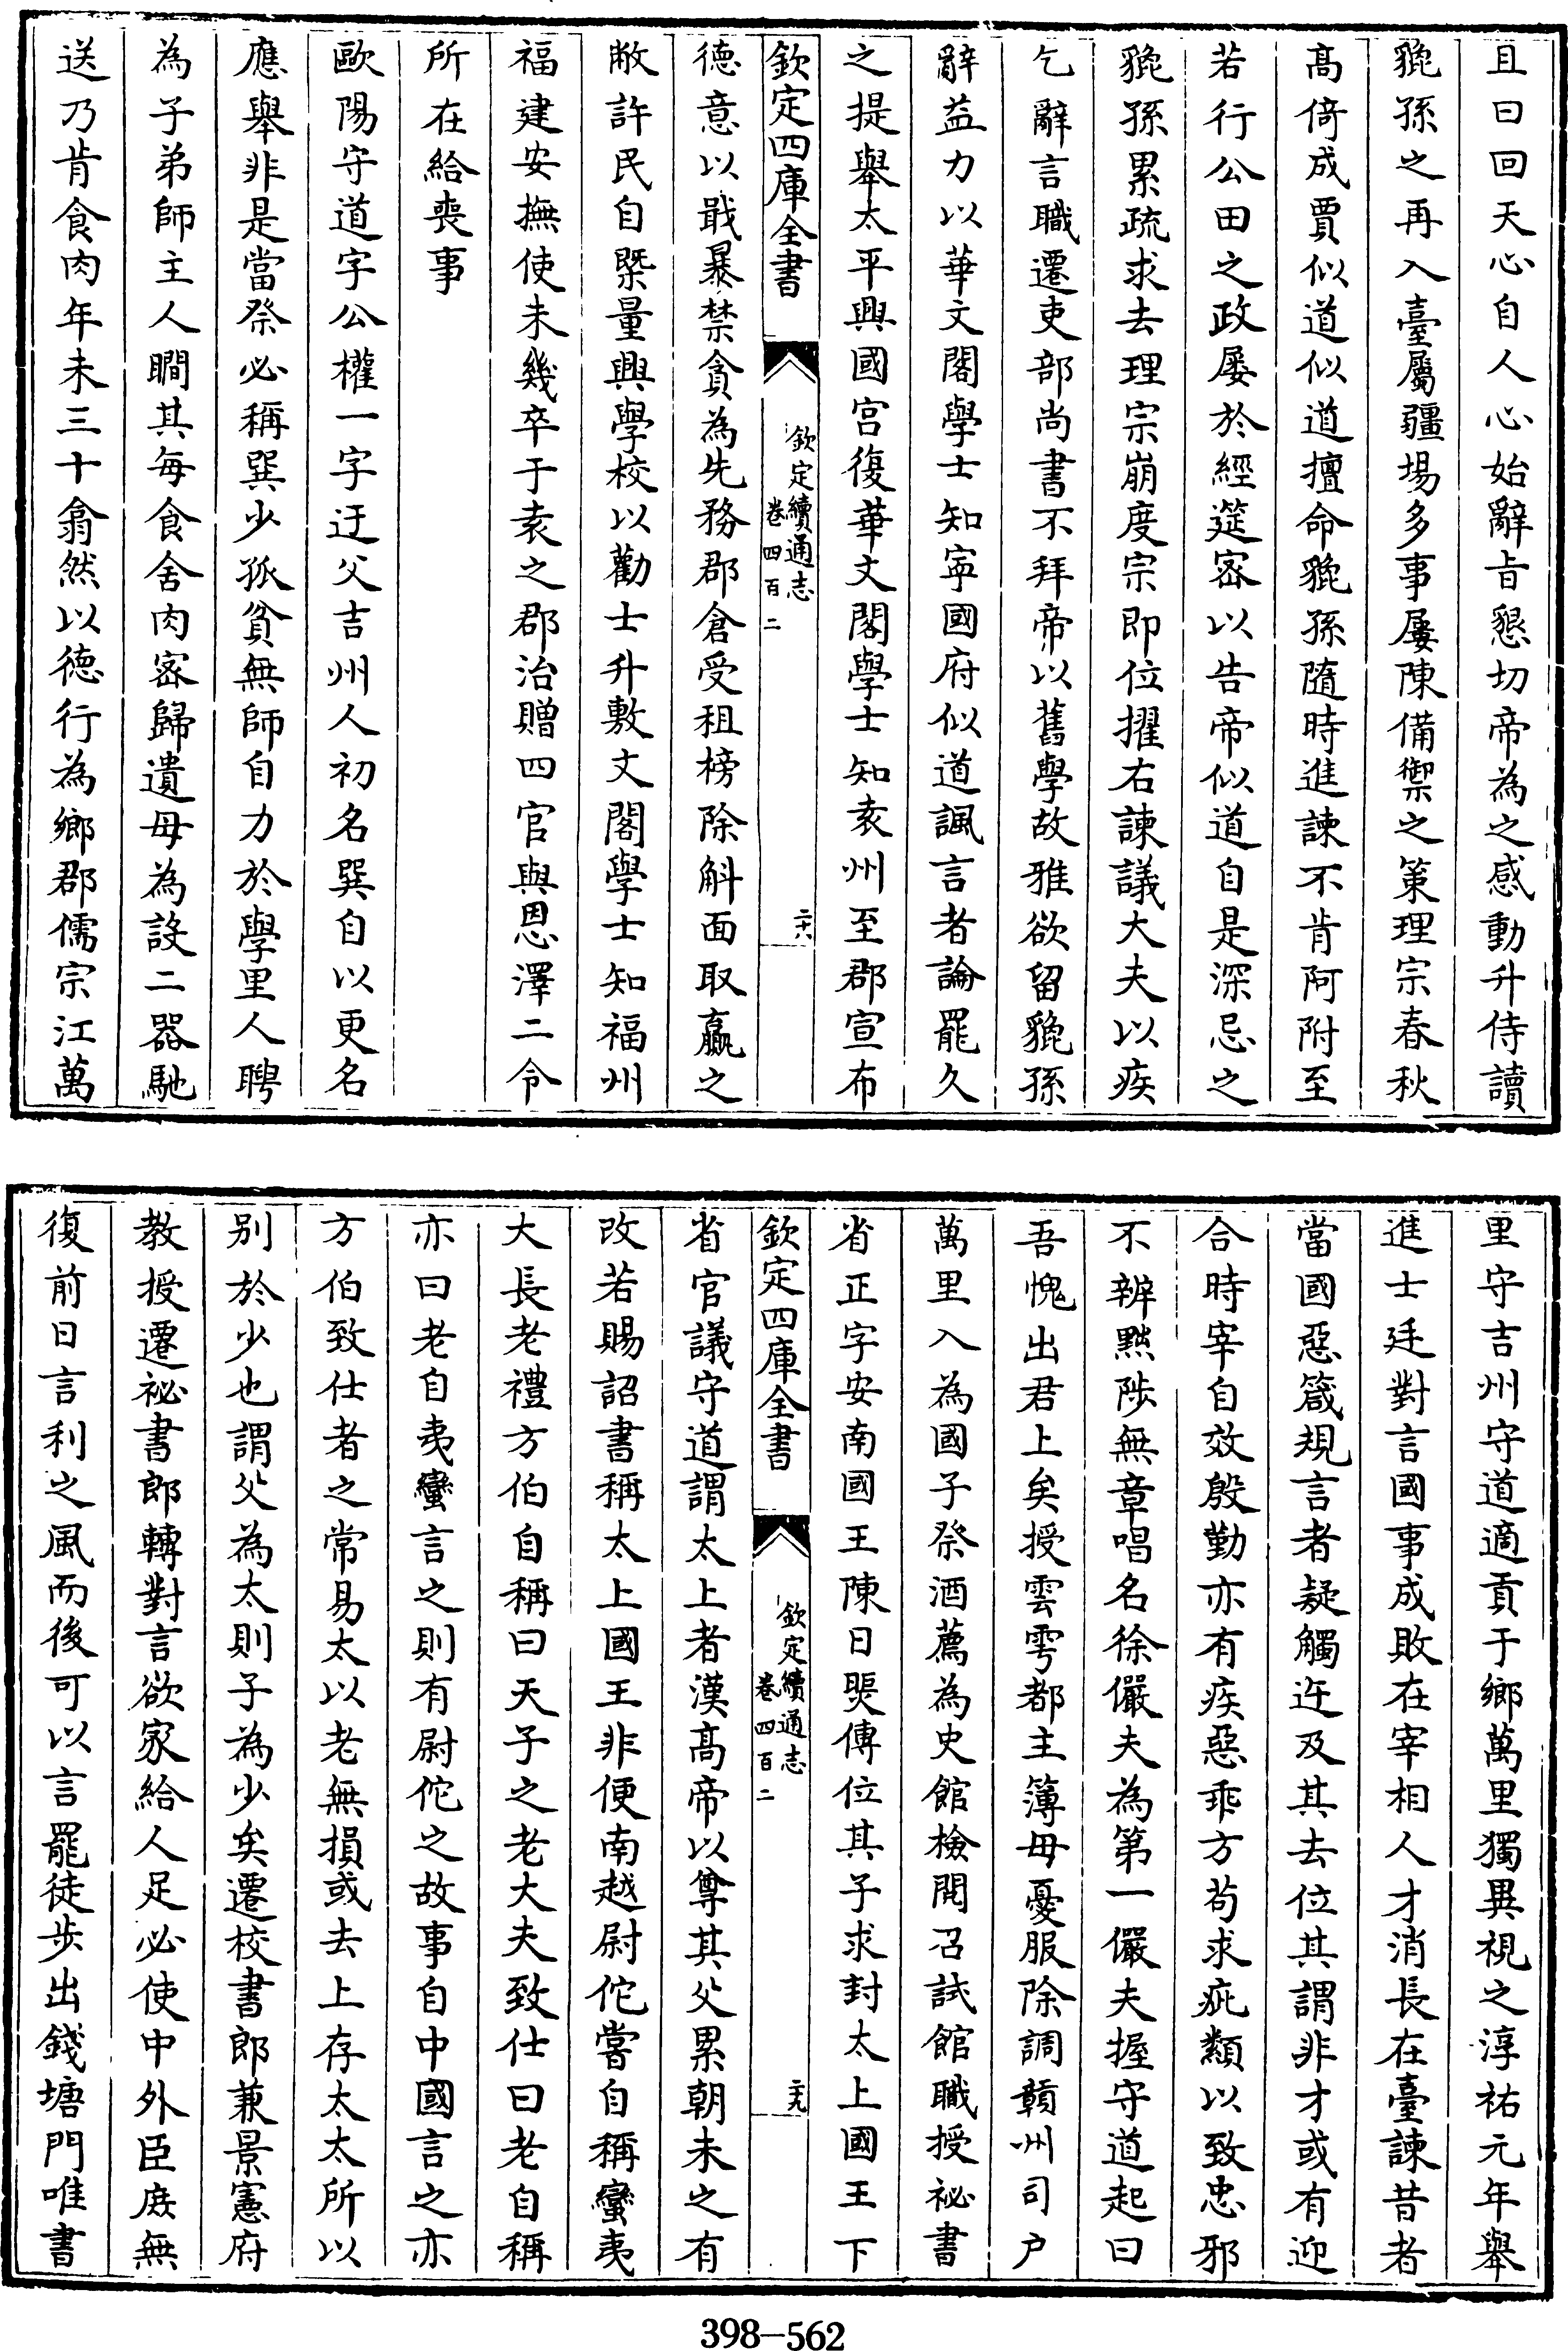 且曰回天心自人心始辭㫖懇切帝為之感動升侍讀
貔孫之再入臺屬疆埸多事屢陳備禦之策理宗春秋
髙倚成賈似道似道擅命貔孫隨時進諫不肯阿附至
若行公田之政屢於經筵密以告帝似道自是深忌之
貔孫累疏求去理宗崩度宗即位擢右諫議大夫以疾
乞辭言職遷吏部尚書不拜帝以舊學故雅欲留貔孫
辭益力以華文閣學士知寧國府似道諷言者論罷久
之提舉太平興國宫復華文閣學士知袁州至郡宣布
欽定四庫全書
欽定續通志
卷四百二
二十八
德意以戢暴禁貪為先務郡倉受租榜除斛面取贏之
敝許民自槩量興學校以勸士升敷文閣學士知福州
福建安撫使未幾卒于袁之郡治贈四官與恩澤二令
所在給喪事
歐陽守道字公權一字迂父吉州人初名巽自以更名
應舉非是當祭必稱巽少孤貧無師自力於學里人聘
為子弟師主人瞷其每食舍肉密歸遺母為設二器馳
送乃肯食肉年未三十翕然以徳行為鄉郡儒宗江萬
里守吉州守道適貢于鄉萬里獨異視之淳祐元年舉
進士廷對言國事成敗在宰相人才消長在臺諫昔者
當國惡箴規言者疑觸迕及其去位其謂非才或有迎
合時宰自效殷勤亦有疾惡乖方苟求疵纇以致忠邪
不辨黜陟無章唱名徐儼夫為第一儼夫握守道起曰
吾愧出君上矣授雲雩都主簿母憂服除調贛州司户
萬里入為國子祭酒薦為史館檢閱召試館職授祕書
省正字安南國王陳日煚傳位其子求封太上國王下
欽定四庫全書
欽定續通志
卷四百二
二十九
省官議守道謂太上者漢髙帝以尊其父累朝未之有
改若賜詔書稱太上國王非便南越尉佗嘗自稱蠻夷
大長老禮方伯自稱曰天子之老大夫致仕曰老自稱
亦曰老自夷蠻言之則有尉佗之故事自中國言之亦
方伯致仕者之常易太以老無損或去上存太太所以
别於少也謂父為太則子為少矣遷校書郎兼景憲府
教授遷祕書郎轉對言欲家給人足必使中外臣庶無
復前日言利之風而後可以言罷徒步出錢塘門唯書
398-562